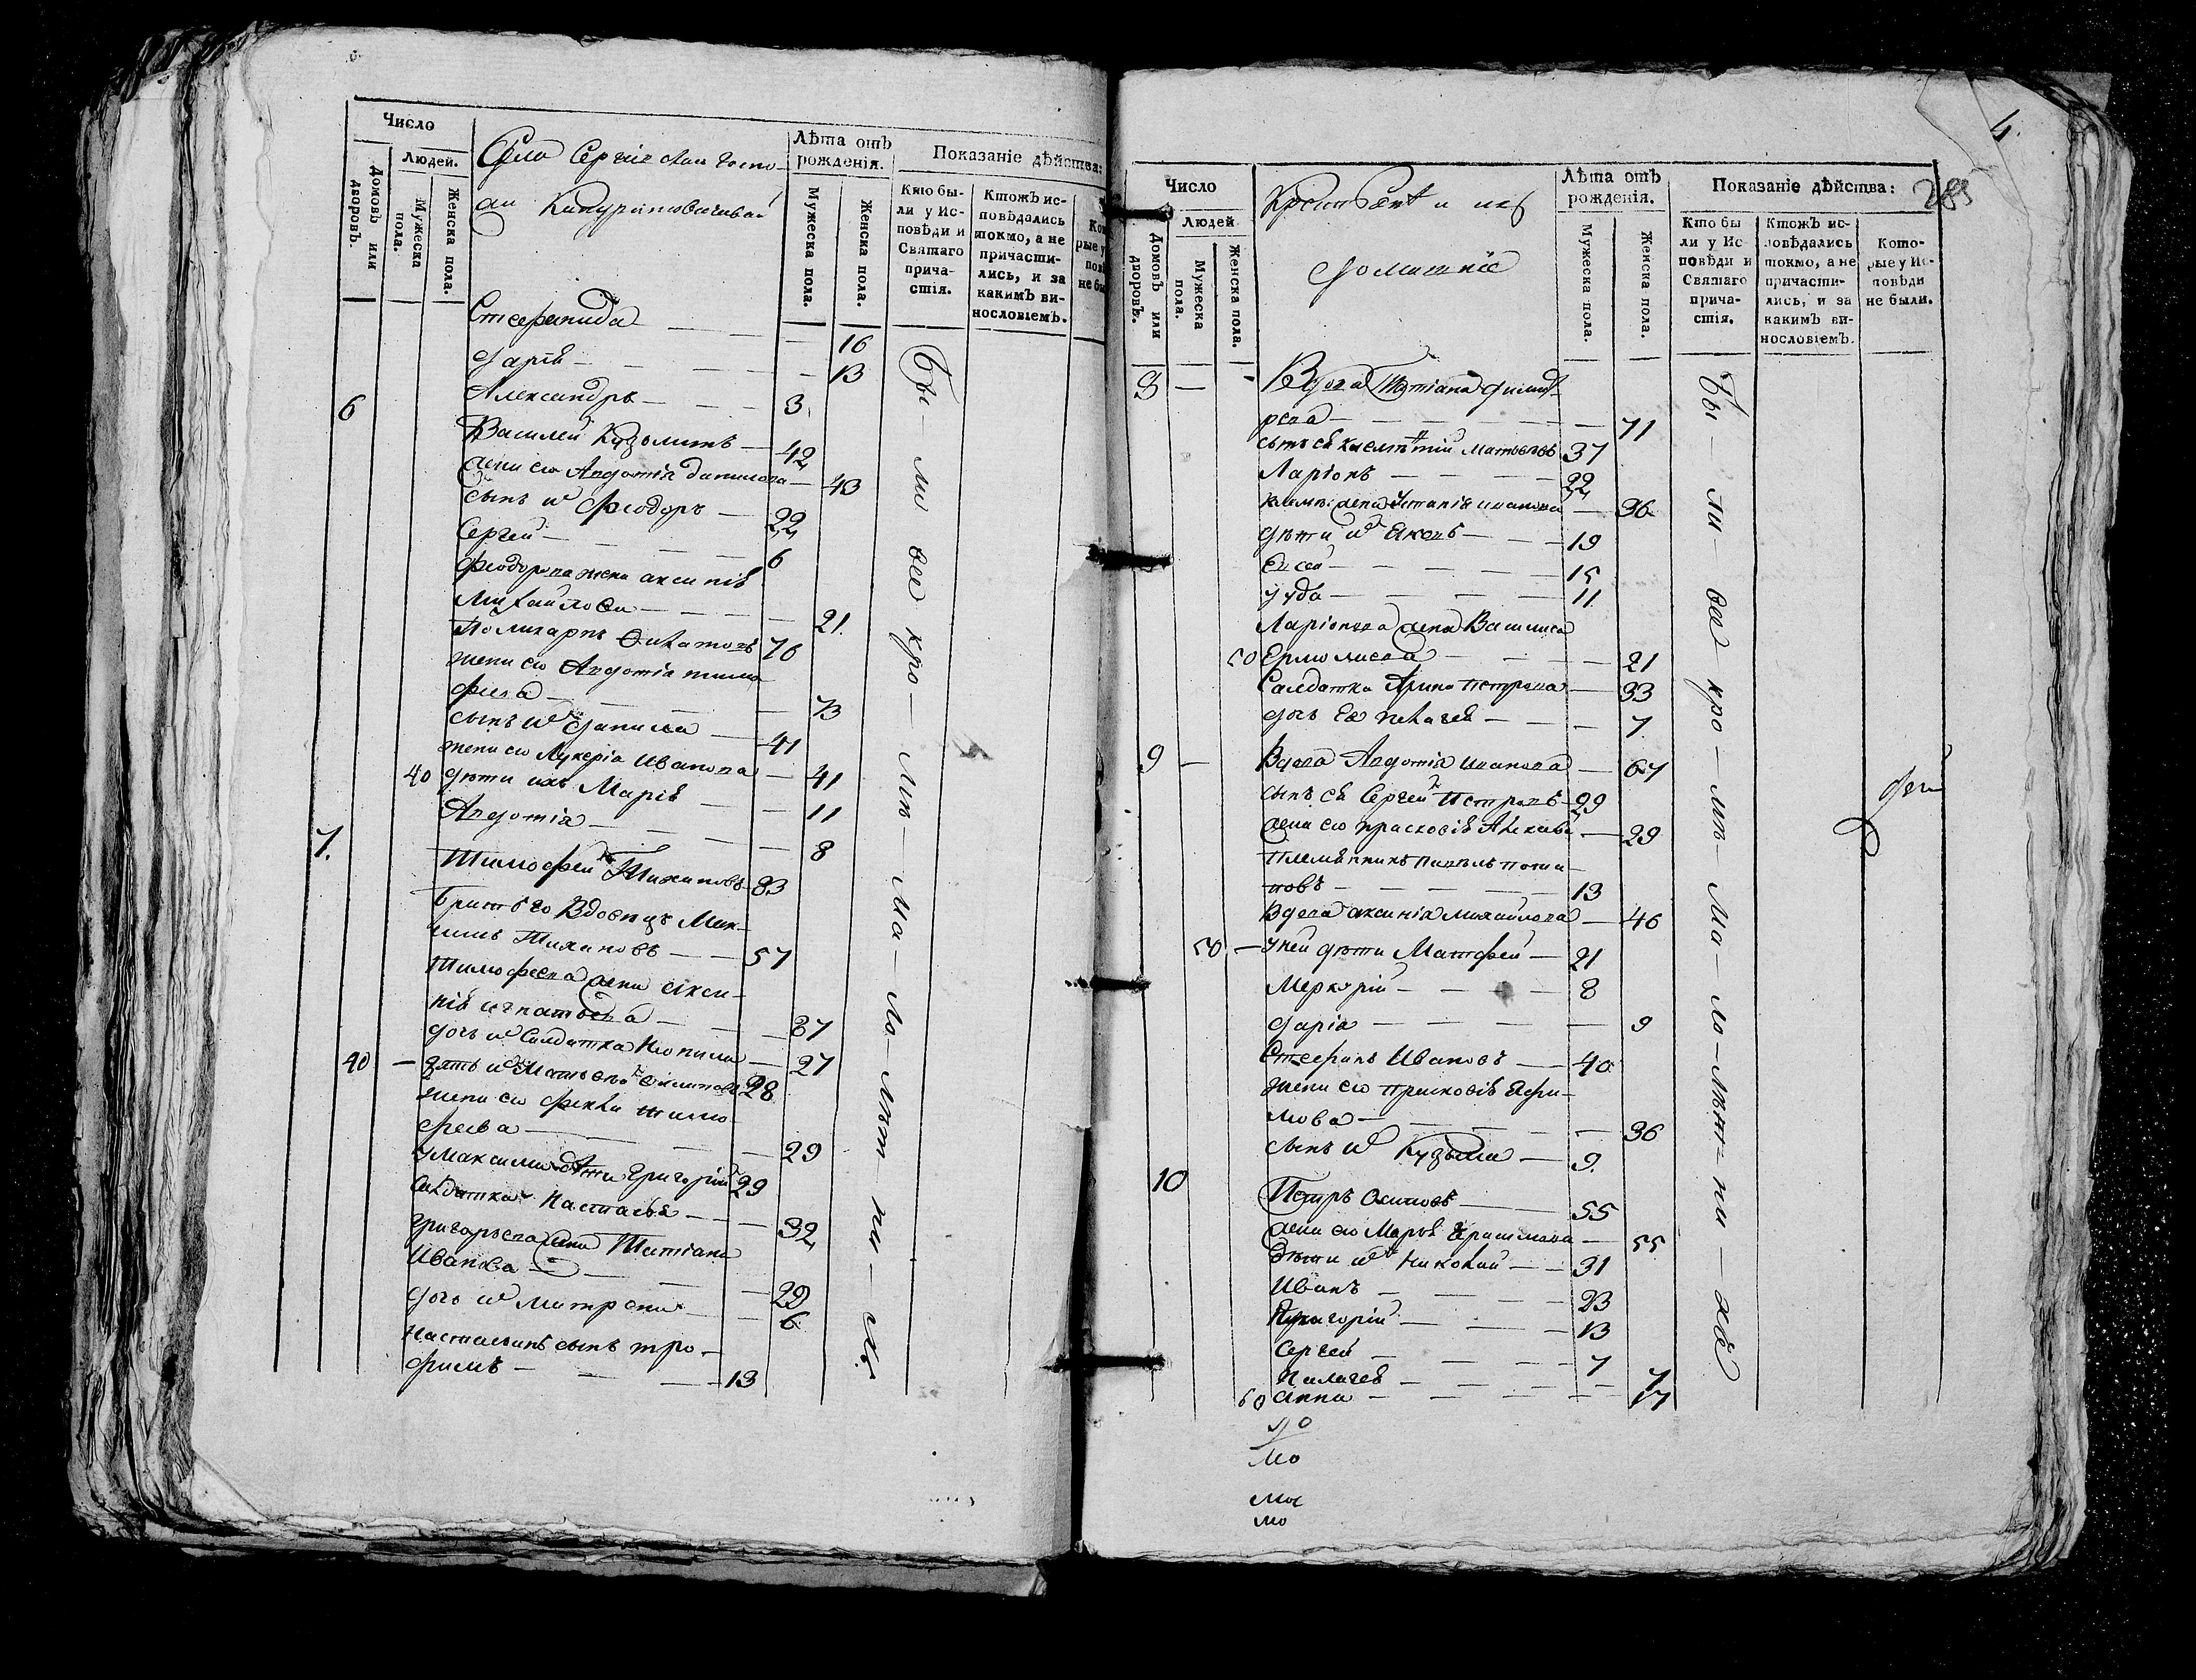 Число
Людей.
Домовъ или дворовъ.
Мужеска пола.
Женска пола.
Село
Лѣта отъ рожденія.
Мужеска пола.
Женска пола.
Показаніе дѣйства:
Кто бы-
ли у Ис-
повѣди и
Святаго
прича-
стія.
Ктожъ ис-
повѣдались
токмо, а не
причасти-
лись, и за
какимъ ви-
нословіемъ.
Стефанида — 16
Дарія — 13
Александръ — 3
6 Василей Кузминъ — 42
жена ево Авдотія Данилова — 43
сынъ их Феодоръ — 22
Сергей — 6
Феодорова жена Аксинія
Михайлова — 21
Поликарпъ 76
жена ево Авдотія Тимо
феева — 73
сынъ их Данила — 41
жена ево Лукерія Иванова — 41
40 дѣти ихъ Марія — 11
Авдотія — 8
7. Тимофей Тихановъ 83
братъ его вдовецъ Мак-
симъ Тихановъ — 57
Тимофеева жена Акси-
нія Игнатьева — 87
дочь их салдатка — 27
40 — зять их 28
жена ево Фекла Тимо
феева — 29
у Максима дѣти Григорій 29
салдатка Настасья — 32
Григорьева жена Татіана
Иванова — 29
дочь их Матрена — 6
Настасьинъ сынъ Тро-
фимъ — 13
Бы- ли все кро- мѣ- ма- ло- лѣт ни- хъ
4.
285
Число
Людей
Домовъ или дворовъ.
Мужеска пола.
Женска пола.
Крестьяне и их
домашніе
Лѣта отъ рожденія.
Мужеска пола.
Женска пола.
Показаніе дѣйства:
Кто бы
ли у Ис-
повѣди и
Святаго
прича-
стія.
Ктожъ ис-
повѣдались
токмо, а не
причасти-
лись, и за
какимъ ви-
нословіемъ.
Кото-
рые у Ис-
повѣди
не были.
8 — Вдова Татіана Димит-
рева — 71
сынъ ея Матвеевъ 37
Ларіонъ — 22
жена Иванова — 36
дѣти их Яковъ — 19
Елисей — 15
Іуда — 11
Ларіонова жена Василиса
50 Ермолаева — 21
Салдатка Арина Петрова — 33
дочь Ея Пелагея — 7
9 — Вдова Авдотія Иванова — 67
сынъ ея Сергей Петровъ — 29
жена ево Прасковія — 29
племянникъ Павелъ Пота-
повъ — 13
Вдова Аксинія Михайлова — 46
50 — у ней дѣти Матфей — 21
Меркурій — 8
Дарія — 9
Стефанъ Ивановъ — 40
жена ево Прасковія Ефи-
мова — 36
сынъ их Кузьма — 9
10 Петръ Осиповъ — 55
жена ево Марья — 55
дѣти их Николай — 31
Иванъ — 23
Григорій — 13
Сергей — 7
Пелагея — 7
60 Анна — 17
Бы — ли — все кро — мѣ Ма — ло — лѣт — ни — хъ